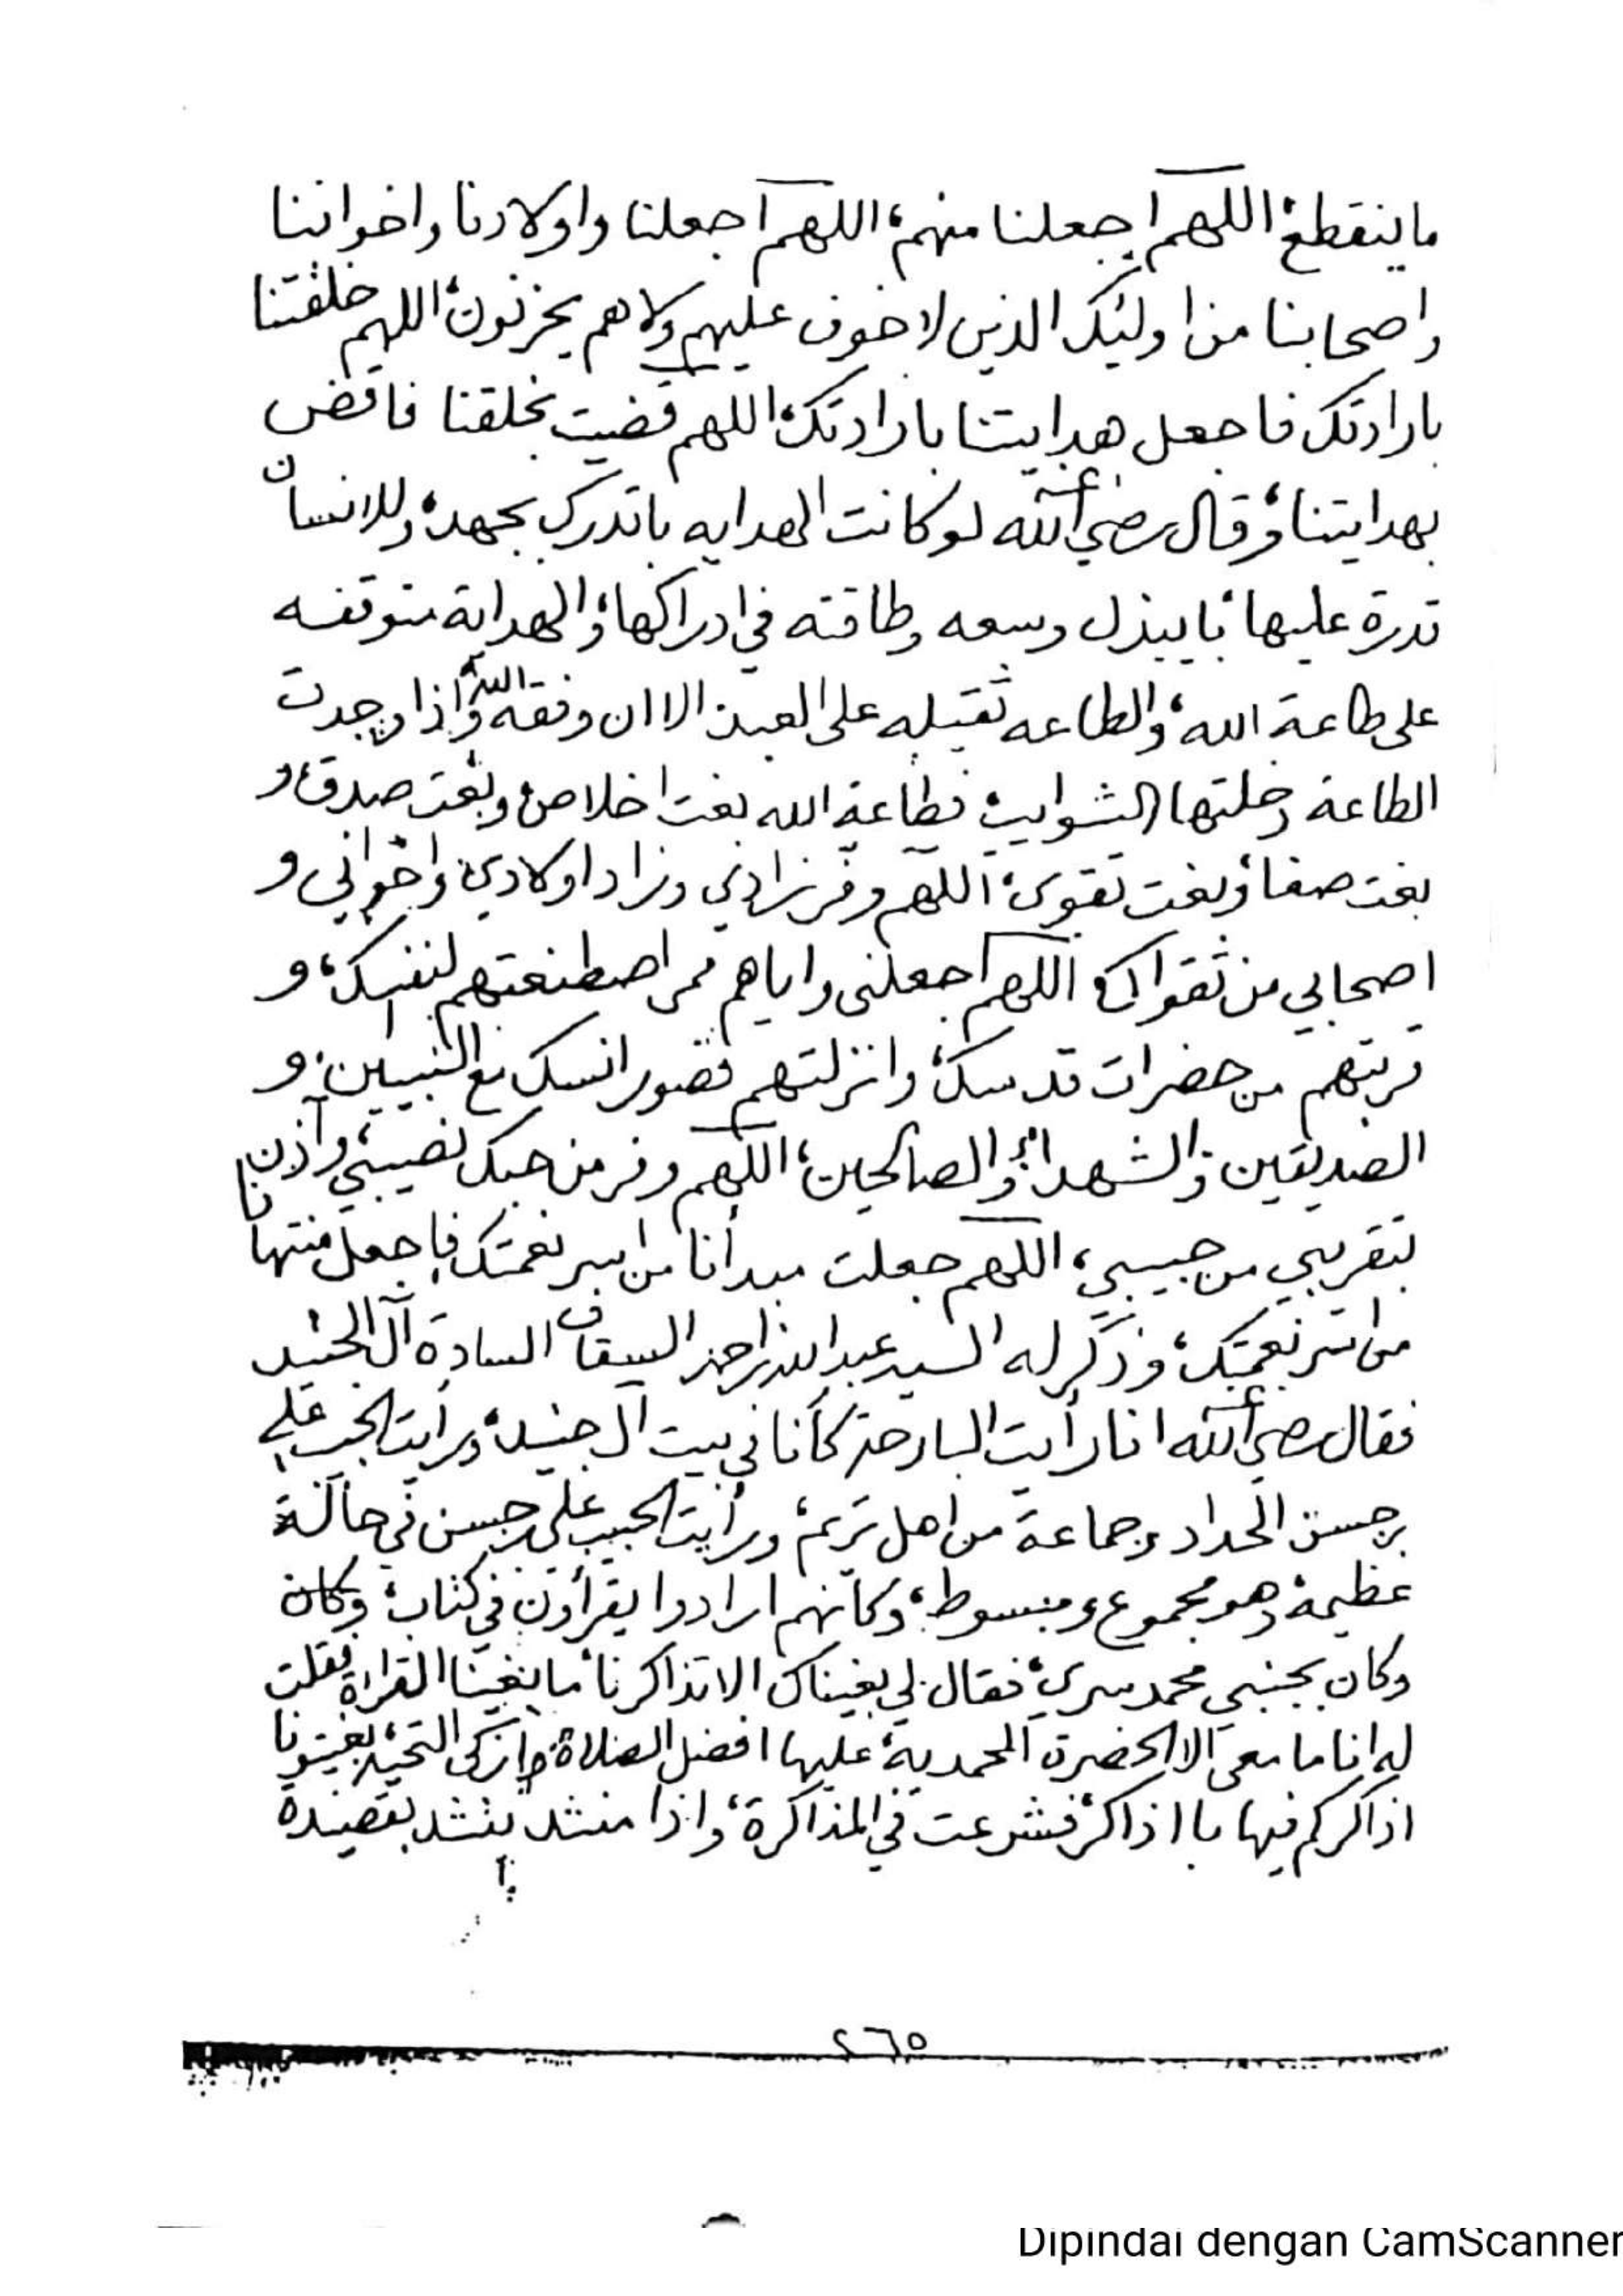 ما ينقطع، اللهم اجعلنا منهم، اللهم اجعلنا واولادنا واخواننا
واصحابنا من اوليك الذين لا خوف عليهم ولا هم يحزنون، اللهم خلقتنا
بارادتك فاجعل هدايتنا بارادتك، اللهم قضيت بخلقنا فاقض
بهدايتنا، وقال رضي الله عنه لو كانت الهدايه باتدرك بجهد، وللانسان
قدرة عليها، بايبذل وسعه وطاقته في ادراكها، والهداية متوقفه
على طاعة الله، والطاعه ثقيله على العبد الا ان وفقه الله، واذا وجدت
الطاعة دخلتها الشوايب، فطاعة الله بغت اخلاص، وبغت صدق، و
بغت صفا، وبغت تقوى، اللهم وفر زادي وزاد اولادي واخواني و
اصحابي من تقواك، اللهم اجعلني واياهم ممن اصطنعتهم لنفسك، و
قربتهم من حضرات قدسك، وانزلتهم قصور انسك مع النبيين، و
الصديقين والشهداء، والصالحين، اللهم وفر من حبك نصيبي، وآذن
بتقريبي من حبيبي، اللهم جعلت مبدأنا من اسر نعمتك فاجعل منتهانا
من اسر نعمتك، وذكر له السيد عبدالله بن احمد السقاف السادة آل الجنيد
فقال رضي الله عنه انا رأيت البارحة كأنا في بيت آل جنيد، ورأيت الحبيب علي
بن حسن الحداد وجماعة من اهل تريم، ورأيت الحبيب علي بن حسن في حالة
عظيمة وهو مجموع ومبسوط، وكأنهم ارادوا يقرأون في كتاب، وكان
وكان بجنبي محمد سري، فقال لي بغيناك الا تذاكرنا، ما بغينا القراة، فقلت
له انا ما معي الا الحضرة المحمدية، عليها افضل الصلاة، وازكى التحية، بغيتونا
اذاكركم فيها با اذاكر، فشرعت في المذاكرة، واذا منشد ينشد بقصيدة
٢٦٥
Dipindai dengan CamScanner